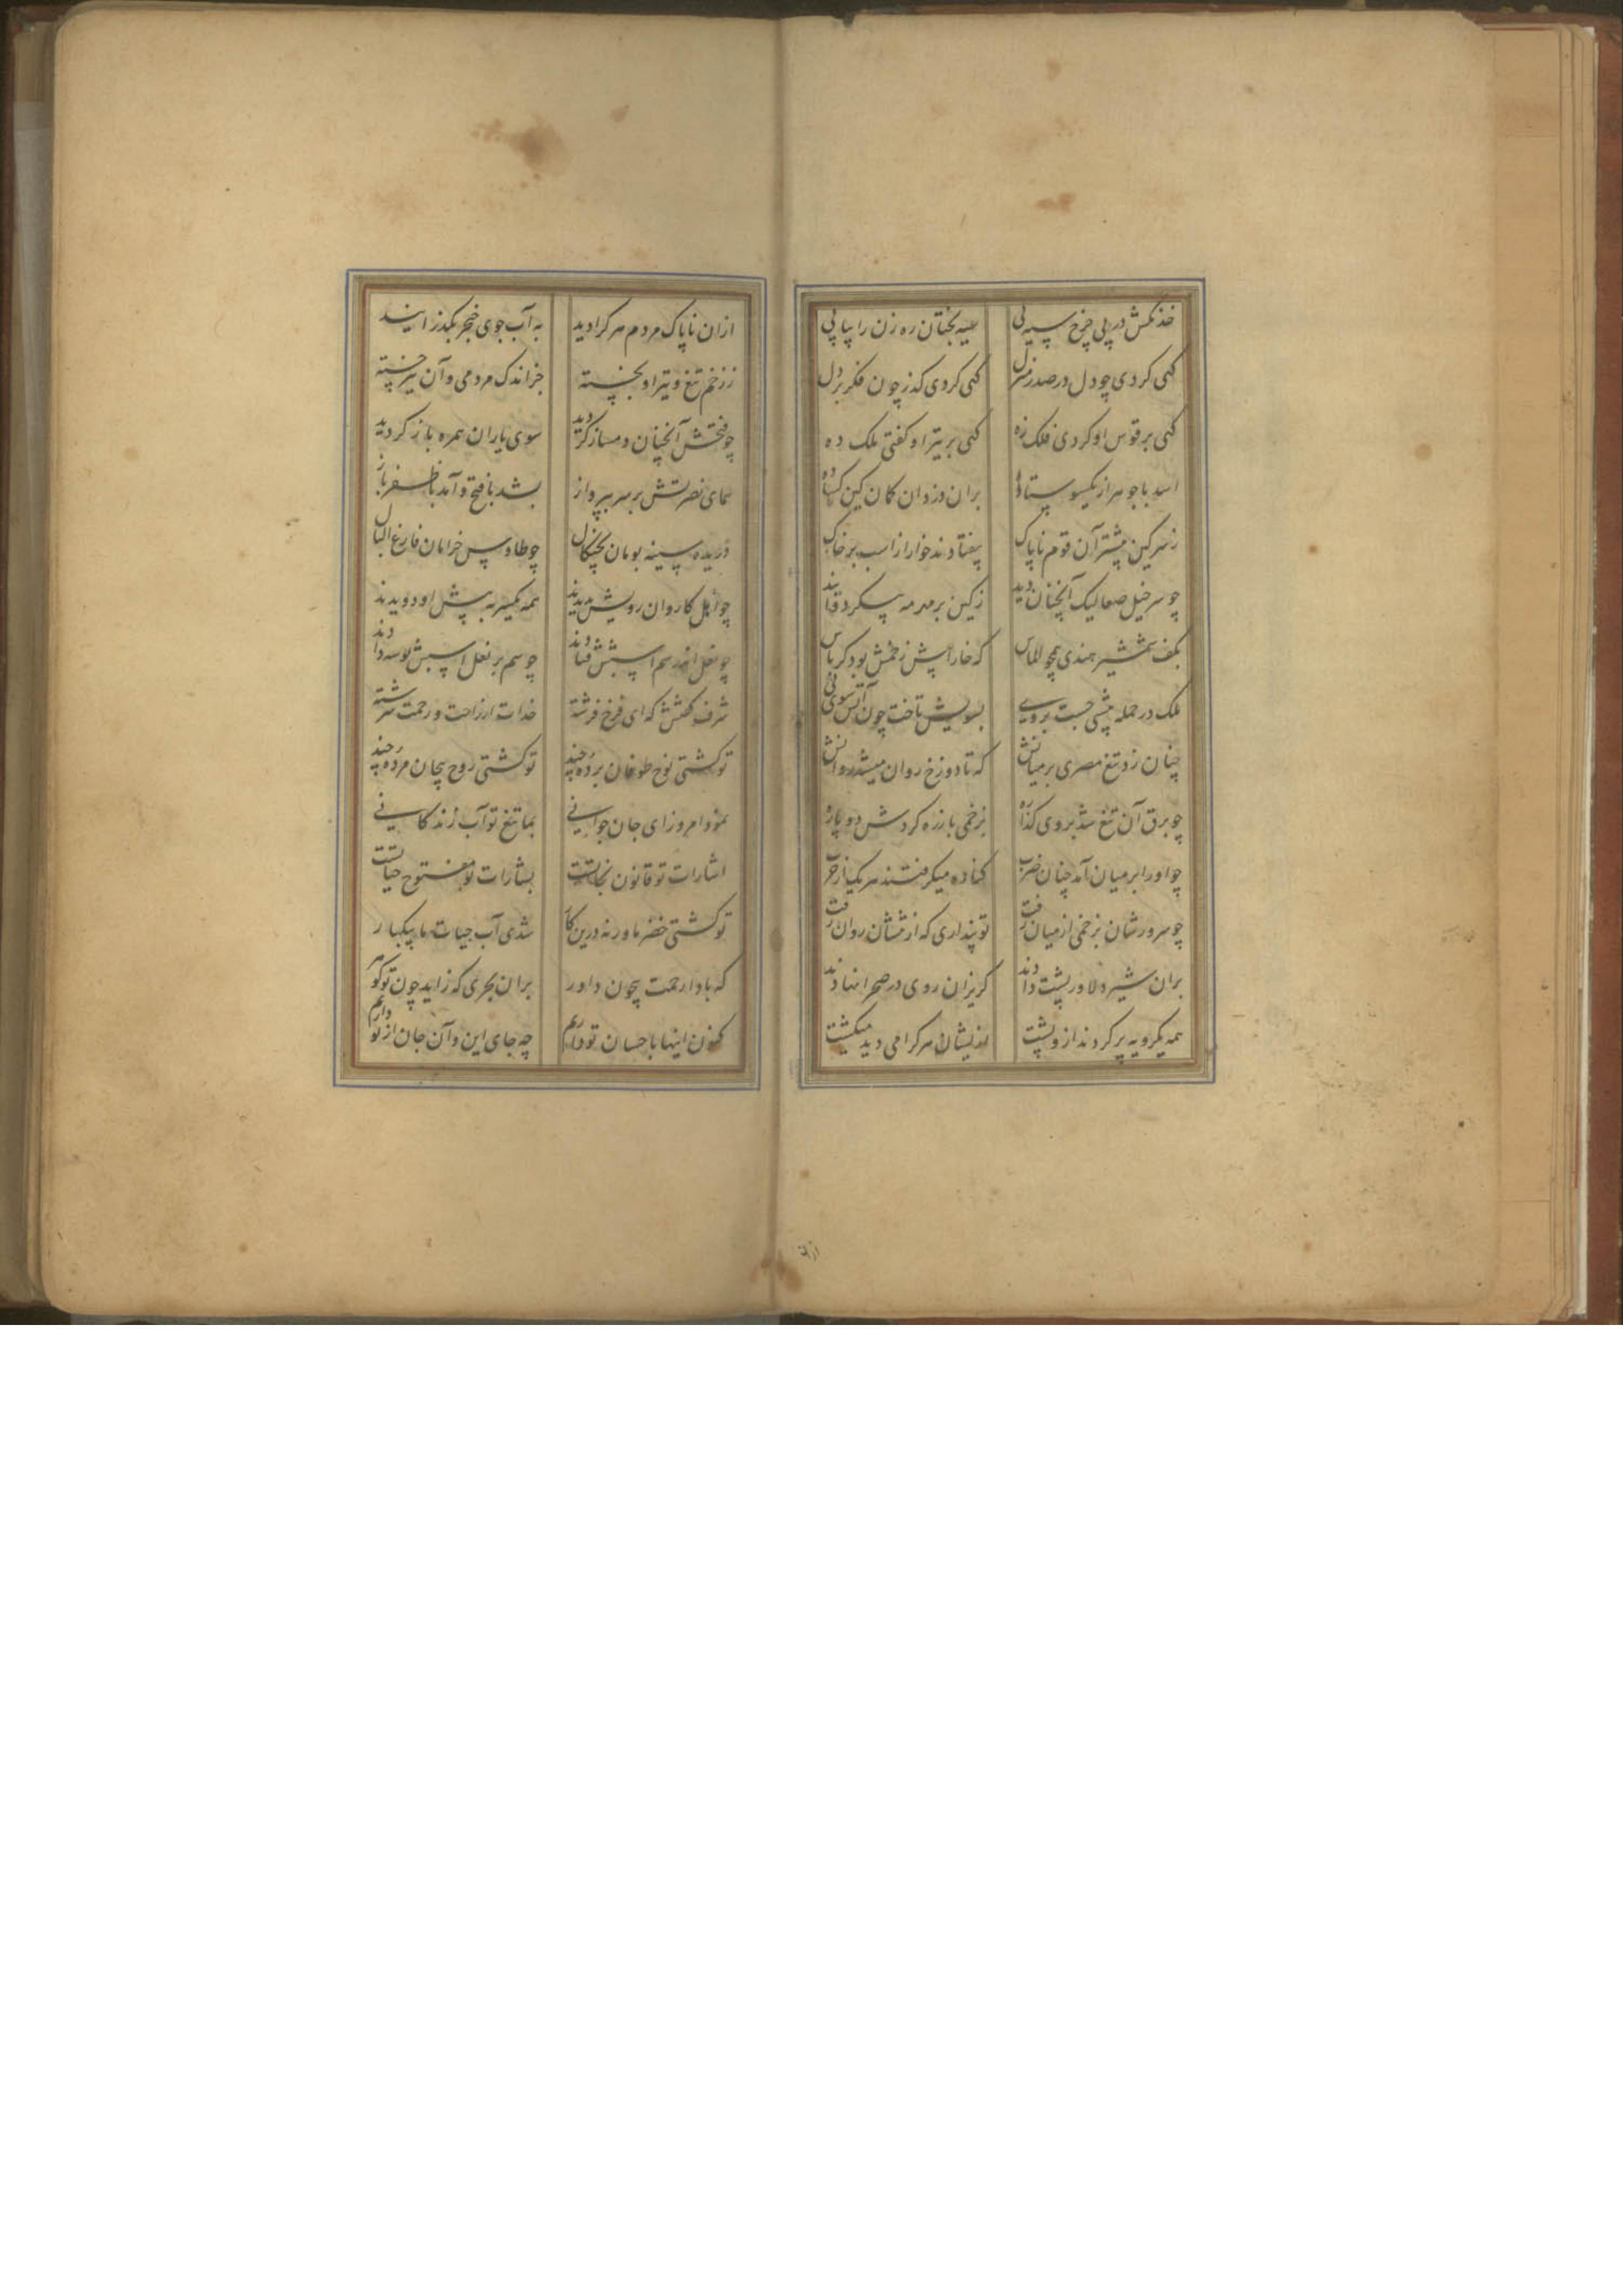 خدنکش در پی چرخ سیه پی سیه بختان ره زن را پیاپی
کهی کردی چو دل در صدر منزل کهی کردی کذر چون فکر بر دل
کهی بر قوس او کردی فلک زه کهی بر تیر او کفتی ملک ده
اسد با جوهر از یکسو ستاده بران دزدان کمان کین کشاده
ز سر کین بیشتر آن قوم ناپاک بیفتادند خوار از اسب بر خاک
چو سر خیل صعالیک آنچنان دید ز کین بر مهر مه
بکف شمشیر هندی همچو الماس که خارا پیش زخمش بود کرباس
ملک در حمله پیشی جست بر وی بسویش تاخت چون آتش سوی نی
چنان زد تیغ مصری بر میانش که تا دوزخ روان میشد روانش
چو برق آن تیغ شد بروی کذاره بزخمی با زره کردش دو پاره
چو او را بر میان آمد چنان ضرب کناره میکرفتند هر یک از حرب
چو سرورشان بزخمی از میان رفت تو پنداری که از تنشان روان رفت
بران شیر دلاور پشت دادند کریزان روی در صحرا نهادند
همه یکرویه پر کردند ازو پشت از یشان هر کرا می دید میکشت
ازان ناپاک مردم هر کرا دید به آب جوی خنجر بکذرانید
ز زخم تیغ و تیر او بخسته جز اندک مردمی وآن نیز خسته
چو فتحش آنچنان دمساز کردید سوی یاران همره باز کردید
همای نصرتش بر سر بپرواز بشد با فتح و آمد با ظفر باز
دریده سینه بومان بچنکال چو طاوس خرامان فارغ البال
چو اهل کاروان رویش بدیدند همه یکسر به پیش او دویدند
چو نعل اندر سم اسبش فتادند چو سم بر نعل اسبش بوسه دادند
شرف کفتش که ای فرخ فرشته خدات از راحت و رحمت سرشته
تو کشتی نوح طوفان برده چند تو کشتی روح بیجان مرده چند
نمود امروز ای جان جوانی بما تیغ تو آب زندکانی
اشارات تو قانون نجاتست بشارات تو مفتوح حیاتست
تو کشتی خضر ما ورنه درین کار شدی آب حیات ما پیکبار
که بادا رحمت بیچون داور بران بحری که زاید چون تو کوهر
کنون اینها باحسان تو داریم چه جای این وآن جان از تو داریم